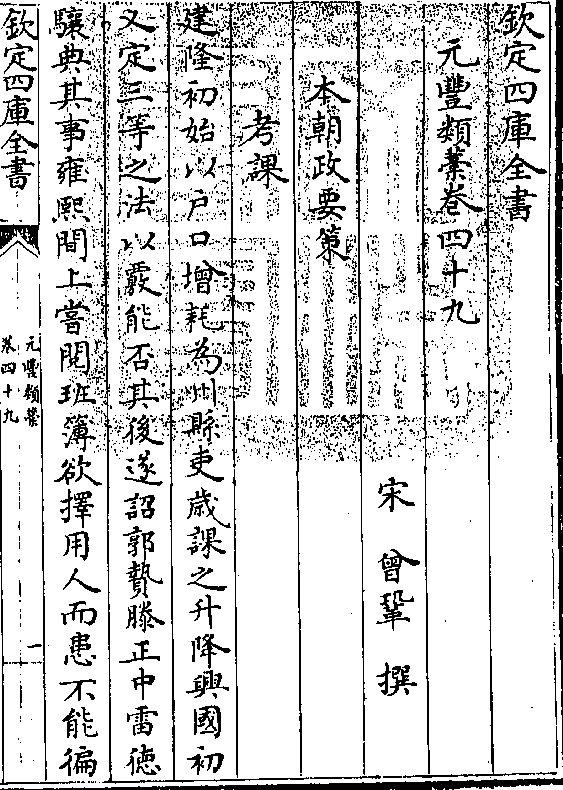 欽定四庫全書
元豐類藁卷四十九
宋 曾鞏 撰
本朝政要策
考課
建隆初始以户口增耗為州縣吏歳課之升降興國初
又定三等之法以覈能否其後遂詔郭贄滕正中雷徳
驤典其事雍熙間上嘗閱班簿欲擇用人而患不能徧
欽定四庫全書
元豐類藁
卷四十九
一